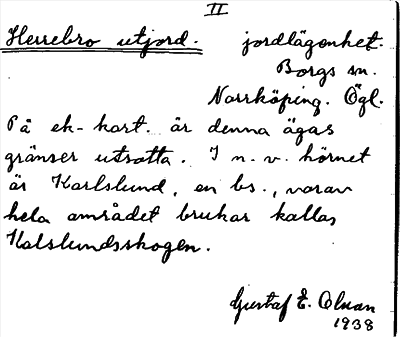 II
Herrebro utjord. jordlägenhet.
Borgs sn.
Norrköping. Ögl.
På ek-kart. är denna ägas
gränser utsatta. I n. v. hörnet
är Karlslund, en bs., varav
hela området brukar kallas
Kalslundsskogen.
Gustaf E. Olsson
1938